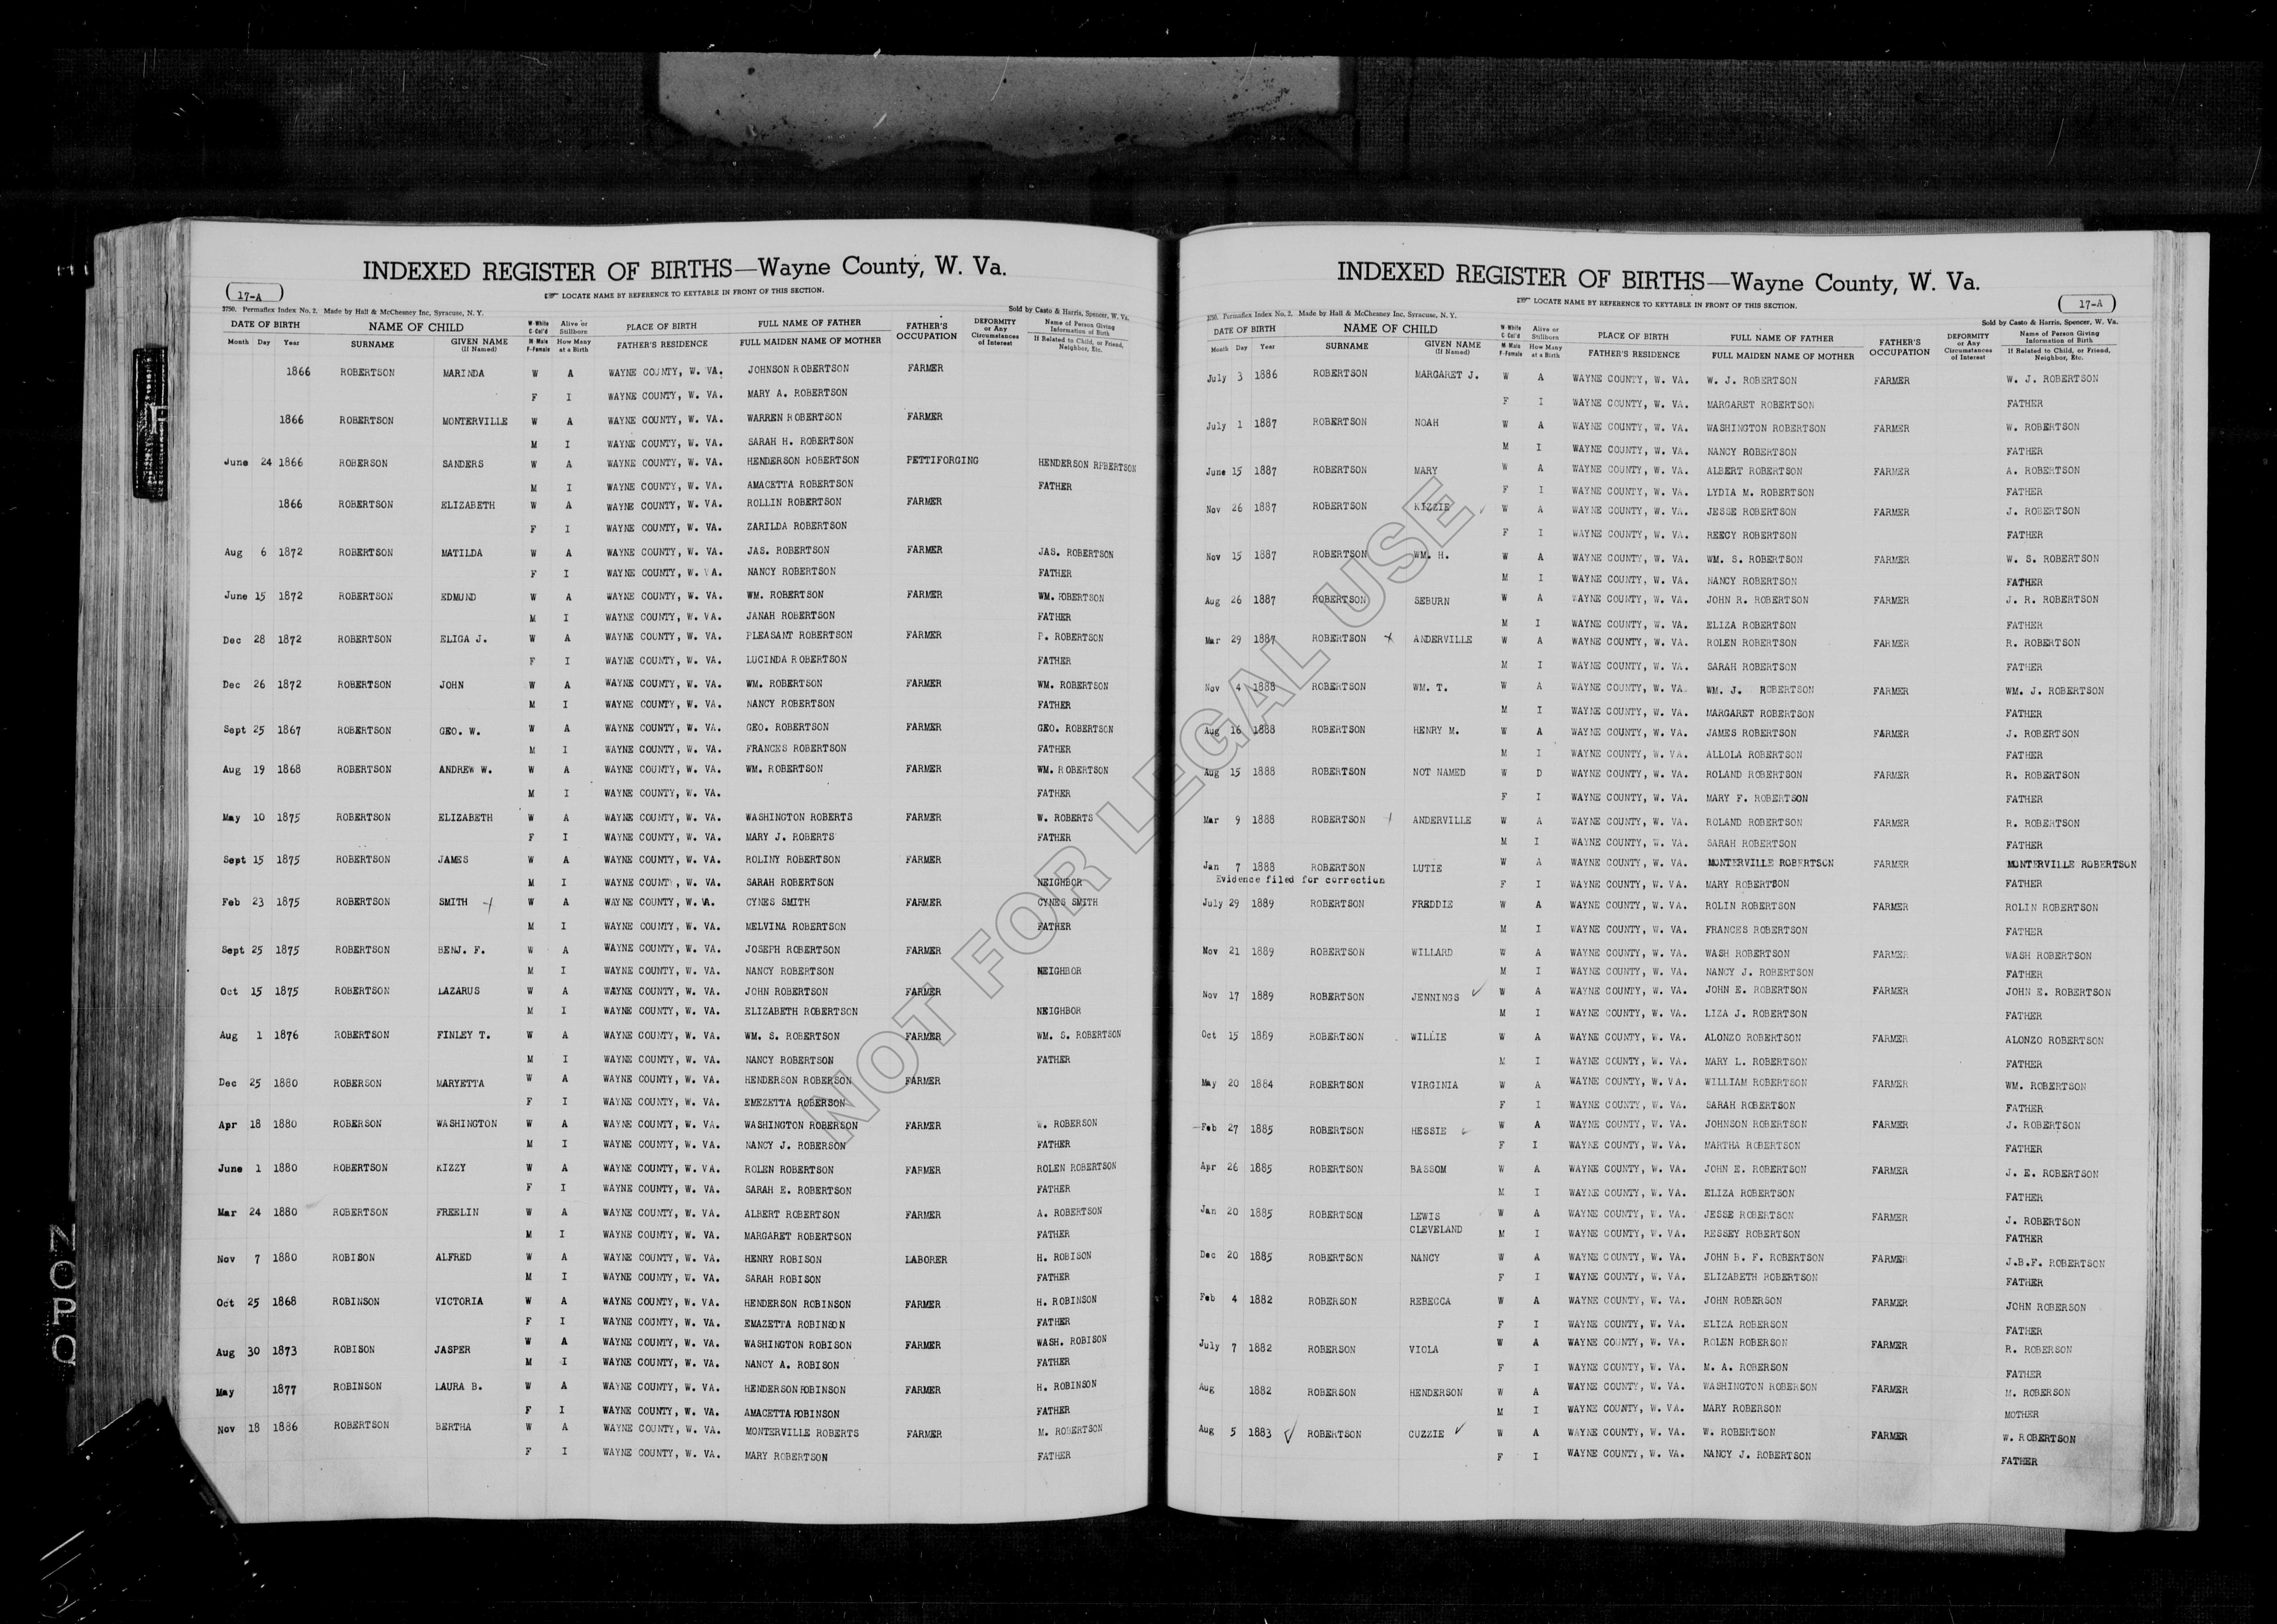 INDEXED REGISTER OF BIRTHS—Wayne County, W. Va.
17-A
LOCATE NAME BY REFERENCE TO KEYTABLE IN FRONT OF THIS SECTION.
2750. Permaflex Index No. 2. Made by Hall & McChesney Inc, Syracuse, N. Y. Sold by Casto & Harris, Spencer, W. Va.
DATE OF BIRTH NAME OF CHILD W-White C-Col'd Alive or Stillborn PLACE OF BIRTH FULL NAME OF FATHER FATHER'S OCCUPATION DEFORMITY or Any Circumstances of Interest Name of Person Giving Information of Birth
Month Day Year SURNAME GIVEN NAME (If Named) M-Male F-Female How Many at a Birth FATHER'S RESIDENCE FULL MAIDEN NAME OF MOTHER If Related to Child, or Friend, Neighbor, Etc.
1866 ROBERTSON MARINDA W A WAYNE COUNTY, W. VA. JOHNSON ROBERTSON FARMER
F I WAYNE COUNTY, W. VA. MARY A. ROBERTSON
1866 ROBERTSON MONTERVILLE W A WAYNE COUNTY, W. VA. WARREN ROBERTSON FARMER
M I WAYNE COUNTY, W. VA. SARAH H. ROBERTSON
June 24 1866 ROBERSON SANDERS W A WAYNE COUNTY, W. VA. HENDERSON ROBERTSON PETTIFORGING HENDERSON RPBERTSON
M I WAYNE COUNTY, W. VA. AMACETTA ROBERTSON FATHER
1866 ROBERTSON ELIZABETH W A WAYNE COUNTY, W. VA. ROLLIN ROBERTSON FARMER
F I WAYNE COUNTY, W. VA. ZARILDA ROBERTSON
Aug 6 1872 ROBERTSON MATILDA W A WAYNE COUNTY, W. VA. JAS. ROBERTSON FARMER JAS. ROBERTSON
F I WAYNE COUNTY, W. VA. NANCY ROBERTSON FATHER
June 15 1872 ROBERTSON EDMUND W A WAYNE COUNTY, W. VA. WM. ROBERTSON FARMER WM. ROBERTSON
M I WAYNE COUNTY, W. VA. JANAH ROBERTSON FATHER
Dec 28 1872 ROBERTSON ELIGA J. W A WAYNE COUNTY, W. VA. PLEASANT ROBERTSON FARMER P. ROBERTSON
F I WAYNE COUNTY, W. VA. LUCINDA ROBERTSON FATHER
Dec 26 1872 ROBERTSON JOHN W A WAYNE COUNTY, W. VA. WM. ROBERTSON FARMER WM. ROBERTSON
M I WAYNE COUNTY, W. VA. NANCY ROBERTSON FATHER
Sept 25 1867 ROBERTSON GEO. W. W A WAYNE COUNTY, W. VA. GEO. ROBERTSON FARMER GEO. ROBERTSON
M I WAYNE COUNTY, W. VA. FRANCES ROBERTSON FATHER
Aug 19 1868 ROBERTSON ANDREW W. W A WAYNE COUNTY, W. VA. WM. ROBERTSON FARMER WM. ROBERTSON
M I WAYNE COUNTY, W. VA. FATHER
May 10 1875 ROBERTSON ELIZABETH W A WAYNE COUNTY, W. VA. WASHINGTON ROBERTS FARMER W. ROBERTS
F I WAYNE COUNTY, W. VA. MARY J. ROBERTS FATHER
Sept 15 1875 ROBERTSON JAMES W A WAYNE COUNTY, W. VA. ROLINY ROBERTSON FARMER
M I WAYNE COUNTY, W. VA. SARAH ROBERTSON NEIGHBOR
Feb 23 1875 ROBERTSON SMITH W A WAYNE COUNTY, W. VA. CYNES SMITH FARMER CYNES SMITH
M I WAYNE COUNTY, W. VA. MELVINA ROBERTSON FATHER
Sept 25 1875 ROBERTSON BENJ. F. W A WAYNE COUNTY, W. VA. JOSEPH ROBERTSON FARMER
M I WAYNE COUNTY, W. VA. NANCY ROBERTSON NEIGHBOR
Oct 15 1875 ROBERTSON LAZARUS W A WAYNE COUNTY, W. VA. JOHN ROBERTSON FARMER
M I WAYNE COUNTY, W. VA. ELIZABETH ROBERTSON NEIGHBOR
Aug 1 1876 ROBERTSON FINLEY T. W A WAYNE COUNTY, W. VA. WM. S. ROBERTSON FARMER WM. S. ROBERTSON
M I WAYNE COUNTY, W. VA. NANCY ROBERTSON FATHER
Dec 25 1880 ROBERSON MARYETTA W A WAYNE COUNTY, W. VA. HENDERSON ROBERSON FARMER
F I WAYNE COUNTY, W. VA. EMEZETTA ROBERSON
Apr 18 1880 ROBERSON WASHINGTON W A WAYNE COUNTY, W. VA. WASHINGTON ROBERSON FARMER W. ROBERSON
M I WAYNE COUNTY, W. VA. NANCY J. ROBERSON FATHER
June 1 1880 ROBERTSON KIZZY W A WAYNE COUNTY, W. VA. ROLEN ROBERTSON FARMER ROLEN ROBERTSON
F I WAYNE COUNTY, W. VA. SARAH E. ROBERTSON FATHER
Mar 24 1880 ROBERTSON FREELIN W A WAYNE COUNTY, W. VA. ALBERT ROBERTSON FARMER A. ROBERTSON
M I WAYNE COUNTY, W. VA. MARGARET ROBERTSON FATHER
Nov 7 1880 ROBISON ALFRED W A WAYNE COUNTY, W. VA. HENRY ROBISON LABORER H. ROBISON
M I WAYNE COUNTY, W. VA. SARAH ROBISON FATHER
Oct 25 1868 ROBINSON VICTORIA W A WAYNE COUNTY, W. VA. HENDERSON ROBINSON FARMER H. ROBINSON
F I WAYNE COUNTY, W. VA. EMAZETTA ROBINSON FATHER
Aug 30 1873 ROBISON JASPER W A WAYNE COUNTY, W. VA. WASHINGTON ROBISON FARMER WASH. ROBISON
M I WAYNE COUNTY, W. VA. NANCY A. ROBISON FATHER
May 1877 ROBINSON LAURA B. W A WAYNE COUNTY, W. VA. HENDERSON ROBINSON FARMER H. ROBINSON
F I WAYNE COUNTY, W. VA. AMACETTA ROBINSON FATHER
Nov 18 1886 ROBERTSON BERTHA W A WAYNE COUNTY, W. VA. MONTERVILLE ROBERTS FARMER M. ROBERTSON
F I WAYNE COUNTY, W. VA. MARY ROBERTSON FATHER
INDEXED REGISTER OF BIRTHS—Wayne County, W. Va.
LOCATE NAME BY REFERENCE TO KEYTABLE IN FRONT OF THIS SECTION.
17-A
2750. Permaflex Index No. 2. Made by Hall & McChesney Inc, Syracuse, N. Y. Sold by Casto & Harris, Spencer, W. Va.
DATE OF BIRTH NAME OF CHILD W-White C-Col'd Alive or Stillborn PLACE OF BIRTH FULL NAME OF FATHER FATHER'S OCCUPATION DEFORMITY or Any Circumstances of Interest Name of Person Giving Information of Birth
Month Day Year SURNAME GIVEN NAME (If Named) M Male F-Female How Many at a Birth FATHER'S RESIDENCE FULL MAIDEN NAME OF MOTHER If Related to Child, or Friend, Neighbor, Etc.
July 3 1886 ROBERTSON MARGARET J. W A WAYNE COUNTY, W. VA. W. J. ROBERTSON FARMER W. J. ROBERTSON
F I WAYNE COUNTY, W. VA. MARGARET ROBERTSON FATHER
July 1 1887 ROBERTSON NOAH W A WAYNE COUNTY, W. VA. WASHINGTON ROBERTSON FARMER W. ROBERTSON
M I WAYNE COUNTY, W. VA. NANCY ROBERTSON FATHER
June 15 1887 ROBERTSON MARY W A WAYNE COUNTY, W. VA. ALBERT ROBERTSON FARMER A. ROBERTSON
F I WAYNE COUNTY, W. VA. LYDIA M. ROBERTSON FATHER
Nov 26 1887 ROBERTSON KIZZIE W A WAYNE COUNTY, W. VA. JESSE ROBERTSON FARMER J. ROBERTSON
F I WAYNE COUNTY, W. VA. REECY ROBERTSON FATHER
Nov 15 1887 ROBERTSON WM. H. W A WAYNE COUNTY, W. VA. WM. S. ROBERTSON FARMER W. S. ROBERTSON
M I WAYNE COUNTY, W. VA. NANCY ROBERTSON FATHER
Aug 26 1887 ROBERTSON SEBURN W A WAYNE COUNTY, W. VA. JOHN R. ROBERTSON FARMER J. R. ROBERTSON
M I WAYNE COUNTY, W. VA. ELIZA ROBERTSON FATHER
Mar 29 1887 ROBERTSON ANDERVILLE W A WAYNE COUNTY, W. VA. ROLEN ROBERTSON FARMER R. ROBERTSON
M I WAYNE COUNTY, W. VA. SARAH ROBERTSON FATHER
Nov 4 1888 ROBERTSON WM. T. W A WAYNE COUNTY, W. VA. WM. J. ROBERTSON FARMER WM. J. ROBERTSON
M I WAYNE COUNTY, W. VA. MARGARET ROBERTSON FATHER
Aug 16 1888 ROBERTSON HENRY M. W A WAYNE COUNTY, W. VA. JAMES ROBERTSON FARMER J. ROBERTSON
M I WAYNE COUNTY, W. VA. ALLOLA ROBERTSON FATHER
Aug 15 1888 ROBERTSON NOT NAMED W D WAYNE COUNTY, W. VA. ROLAND ROBERTSON FARMER R. ROBERTSON
F I WAYNE COUNTY, W. VA. MARY F. ROBERTSON FATHER
Mar 9 1888 ROBERTSON ANDERVILLE W A WAYNE COUNTY, W. VA. ROLAND ROBERTSON FARMER R. ROBERTSON
M I WAYNE COUNTY, W. VA. SARAH ROBERTSON FATHER
Jan 7 1888 ROBERTSON LUTIE W A WAYNE COUNTY, W. VA. MONTERVILLE ROBERTSON FARMER MONTERVILLE ROBERTSON
Evidence filed for correction F I WAYNE COUNTY, W. VA. MARY ROBERTSON FATHER
July 29 1889 ROBERTSON FREDDIE W A WAYNE COUNTY, W. VA. ROLIN ROBERTSON FARMER ROLIN ROBERTSON
M I WAYNE COUNTY, W. VA. FRANCES ROBERTSON FATHER
Nov 21 1889 ROBERTSON WILLARD W A WAYNE COUNTY, W. VA. WASH ROBERTSON FARMER WASH ROBERTSON
M I WAYNE COUNTY, W. VA. NANCY J. ROBERTSON FATHER
Nov 17 1889 ROBERTSON JENNINGS W A WAYNE COUNTY, W. VA. JOHN E. ROBERTSON FARMER JOHN E. ROBERTSON
M I WAYNE COUNTY, W. VA. LIZA J. ROBERTSON FATHER
Oct 15 1889 ROBERTSON WILLIE W A WAYNE COUNTY, W. VA. ALONZO ROBERTSON FARMER ALONZO ROBERTSON
M I WAYNE COUNTY, W. VA. MARY L. ROBERTSON FATHER
May 20 1884 ROBERTSON VIRGINIA W A WAYNE COUNTY, W. VA. WILLIAM ROBERTSON FARMER WM. ROBERTSON
F I WAYNE COUNTY, W. VA. SARAH ROBERTSON FATHER
Feb 27 1885 ROBERTSON HESSIE W A WAYNE COUNTY, W. VA. JOHNSON ROBERTSON FARMER J. ROBERTSON
F I WAYNE COUNTY, W. VA. MARTHA ROBERTSON FATHER
Apr 26 1885 ROBERTSON BASSOM W A WAYNE COUNTY, W. VA. JOHN E. ROBERTSON FARMER J. E. ROBERTSON
M I WAYNE COUNTY, W. VA. ELIZA ROBERTSON FATHER
Jan 20 1885 ROBERTSON LEWIS W A WAYNE COUNTY, W. VA. JESSE ROBERTSON FARMER J. ROBERTSON
CLEVELAND M I WAYNE COUNTY, W. VA. RESSEY ROBERTSON FATHER
Dec 20 1885 ROBERTSON NANCY W A WAYNE COUNTY, W. VA. JOHN B. F. ROBERTSON FARMER J.B.F. ROBERTSON
F I WAYNE COUNTY, W. VA. ELIZABETH ROBERTSON FATHER
Feb 4 1882 ROBERSON REBECCA W A WAYNE COUNTY, W. VA. JOHN ROBERSON FARMER JOHN ROBERSON
F I WAYNE COUNTY, W. VA. ELIZA ROBERSON FATHER
July 7 1882 ROBERSON VIOLA W A WAYNE COUNTY, W. VA. ROLEN ROBERSON FARMER R. ROBERSON
F I WAYNE COUNTY, W. VA. M. A. ROBERSON FATHER
Aug 1882 ROBERSON HENDERSON W A WAYNE COUNTY, W. VA. WASHINGTON ROBERSON FARMER M. ROBERSON
M I WAYNE COUNTY, W. VA. MARY ROBERSON MOTHER
Aug 5 1883 ROBERTSON CUZZIE W A WAYNE COUNTY, W. VA. W. ROBERTSON FARMER W. ROBERTSON
F I WAYNE COUNTY, W. VA. NANCY J. ROBERTSON FATHER
NOT FOR LEGAL USE